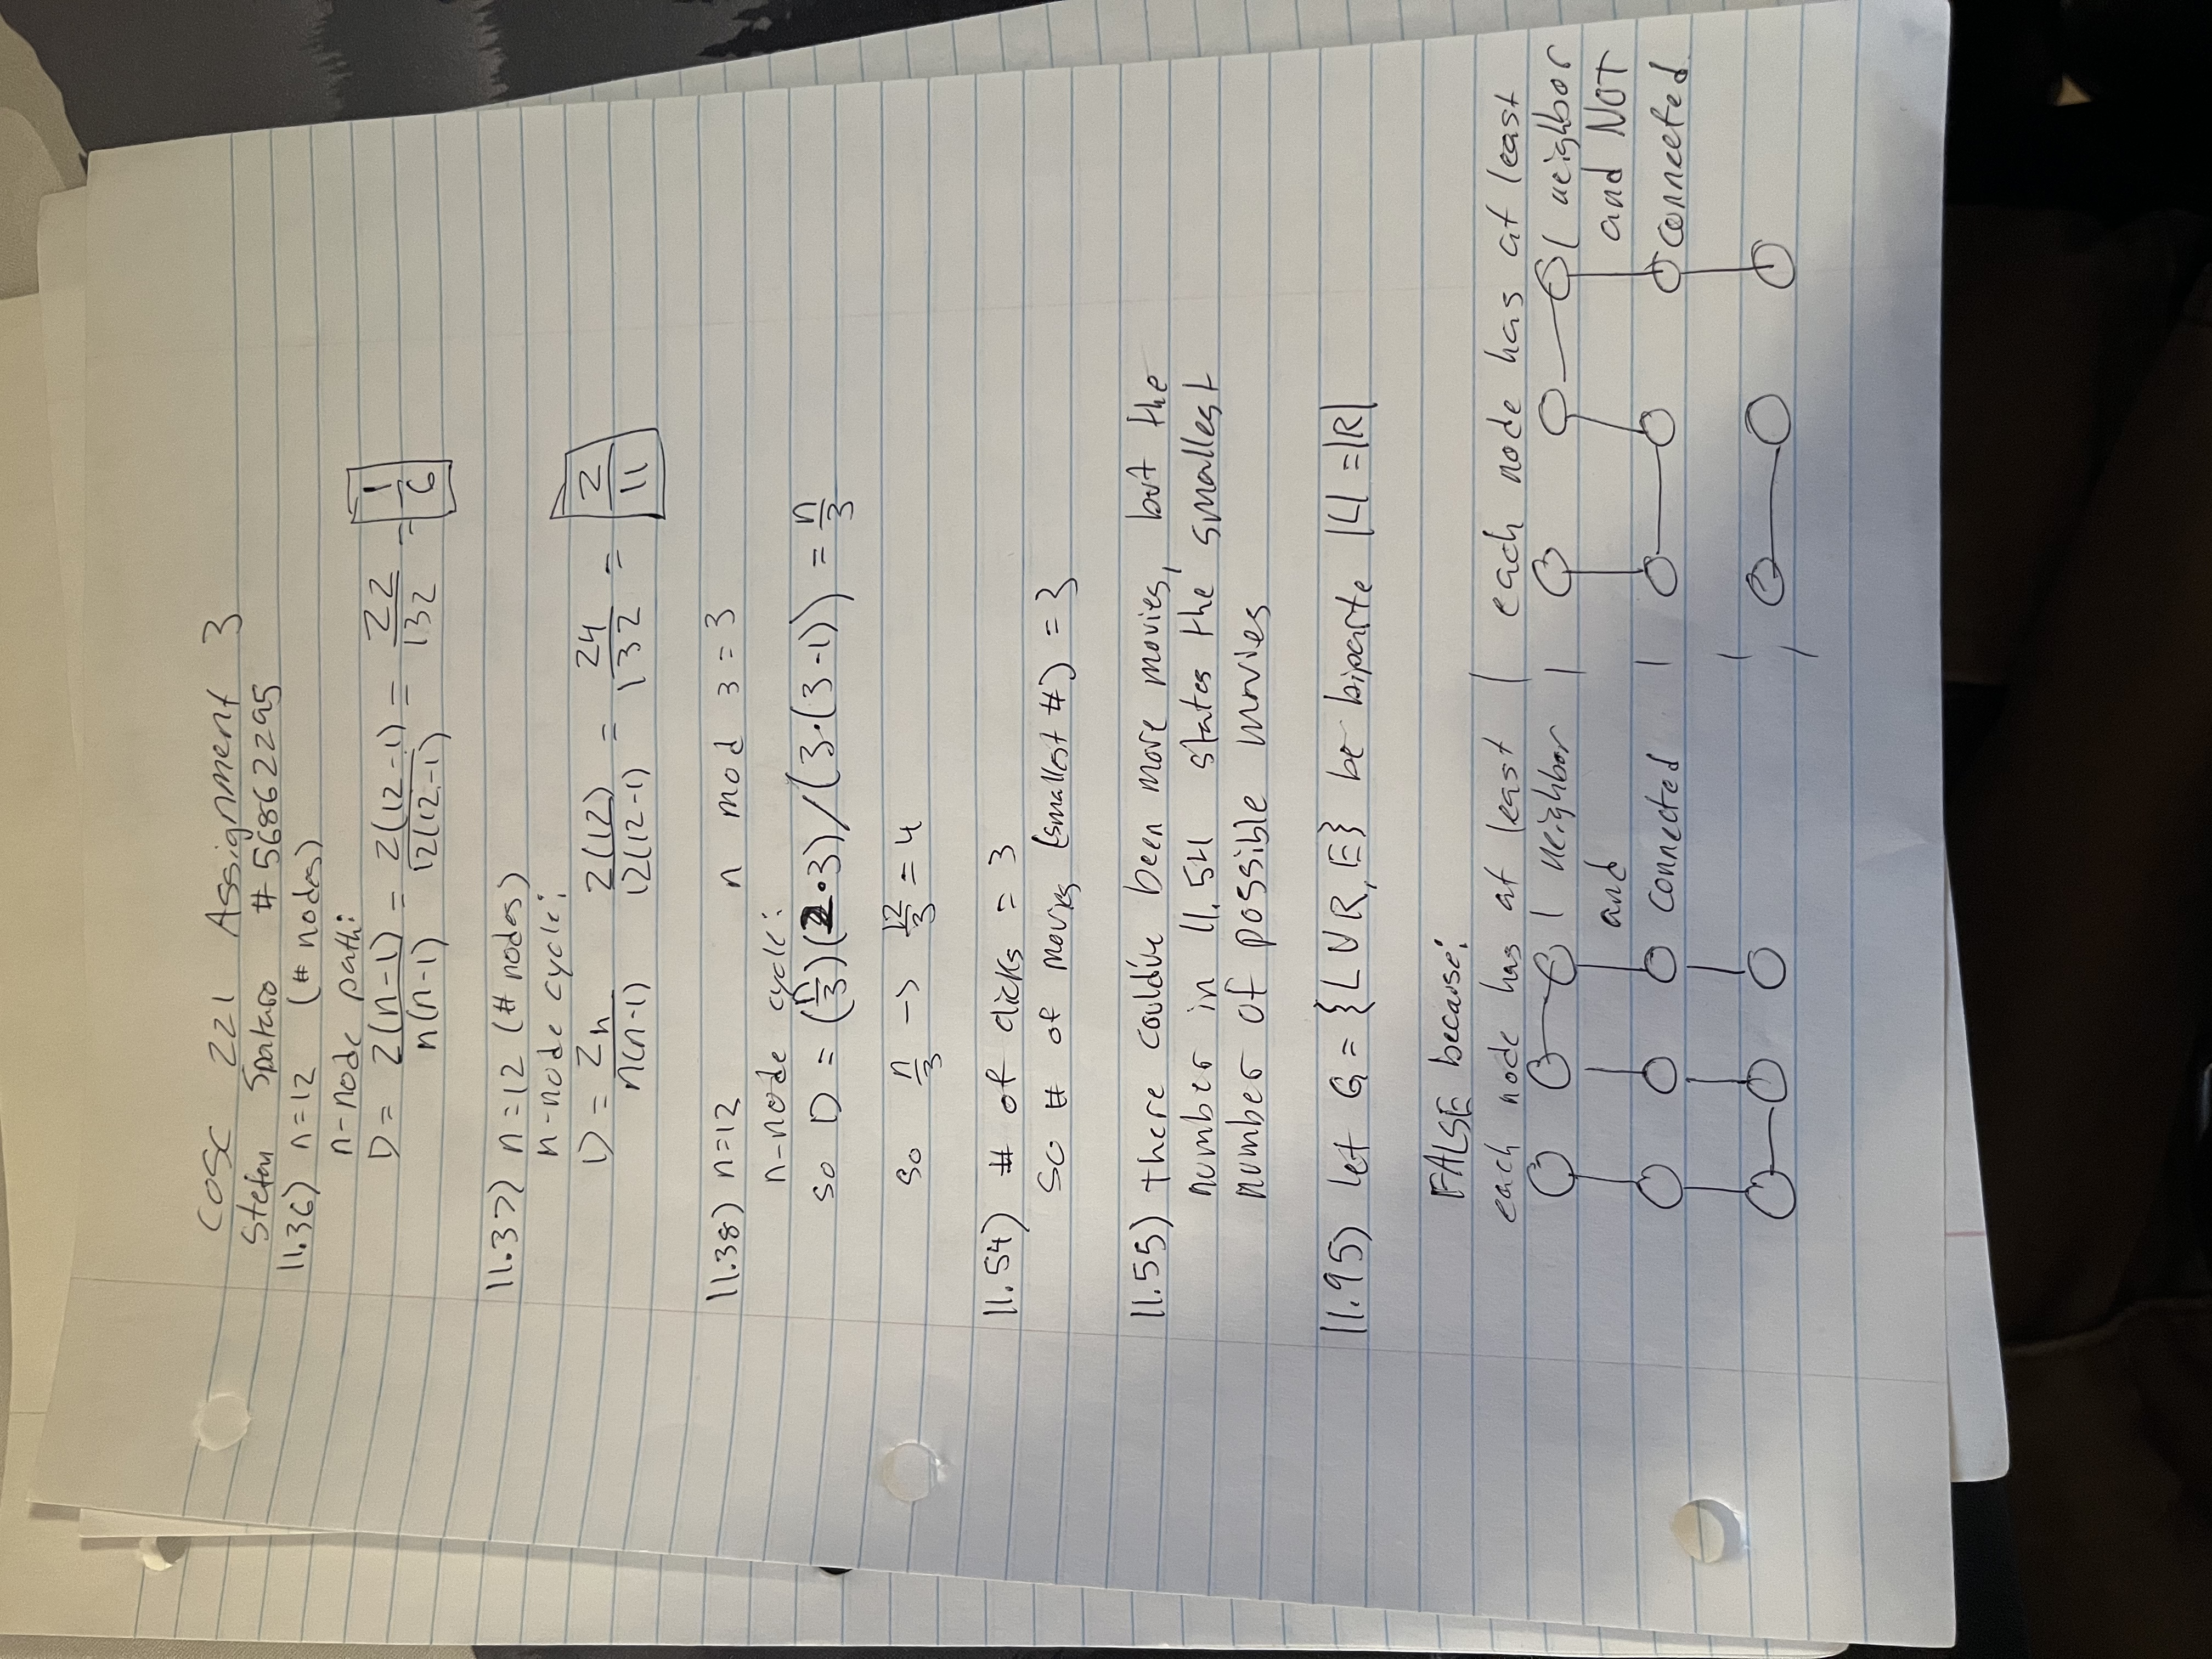 COSC 221 Assignment 3
Stefan Spataro # 56862295
11.36) n=12 (# nodes)
n-node path:
D = 2(n-1)/n(n-1) = 2(12-1)/12(12-1) = 22/132 = 1/6
11.37) n=12 (# nodes)
n-node cycle:
D = 2n/n(n-1) 2(12)/12(12-1) = 24/132 = 2/11
11.38) n=12 n mod 3 = 3
n-node cycle:
so D = (n/3)(2·3)/(3·(3-1)) = n/3
so n/3 -> 12/3 = 4
11.54) # of clicks = 3
so # of movies (smallest #) = 3
11.55) there could've been more movies, but the
number in 11.54 states the smallest
number of possible movies
11.95) let G = {L U R, E} be biparte |L| = |R|
FALSE because:
each node has at least | each node has at least
1 neighbor | 1 neighbor
and and NOT
connected | connected.